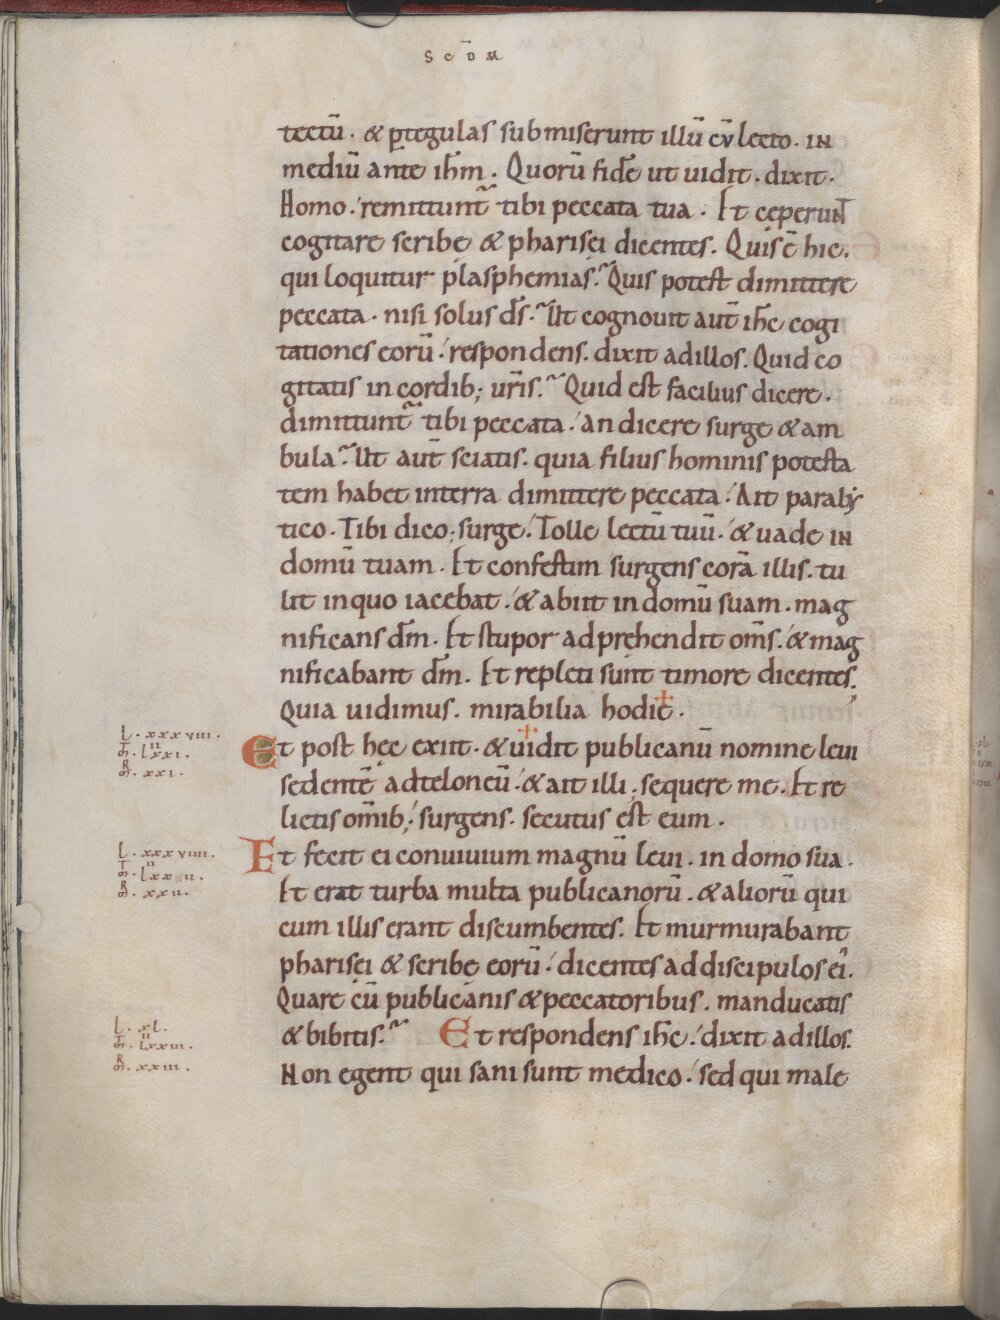 SCD̄M
tectū. & ꝑtegulas submiserunt illū cū lecto. IN
mediū ante ih̄m. Quorū fidē ut uidit. dixit.
Homo. remittunt̄ tibi peccata tua. Et ceperunT
cogitare scribę & pharisei dicentes. Quis ē hic.
qui loquitur plasphemias. Quis potest dimittere
peccata. nisi solus d̄s. Ut cognouit aut̄ ih̄c cogi
tationes eorū. respondens. dixit ad illos. Quid co
gitatis in cordib; ur̄is. Quid est facilius dicere.
dimittunt̄ tibi peccata. an dicere surge & am
bula. Ut aut̄ sciatis. quia filius hominis potesta
tem habet interra dimittere peccata. Ait paraly
tico. Tibi dico; surge. Tolle lectū tuū. & uade IN
domū tuam. Et confestim surgens corā illis. tu
lit in quo iacebat. & abiit in domū suam. mag
nificans d̄m. Et stupor adprehendit om̄s. & mag
nificabant d̄m. Et repleti sunt timore dicentes.
Quia uidimus. mirabilia hodie.
L. xxxviii.
II
M. lxxi.
R
M. xxi.
Et post hęc exiit. & uidit publicanū nomine leui
sedentē adteloneū. & ait illi; sequere me. Et re
lictis om̄ib; surgens. secutus est eum.
L. xxxviiii.
II
R
M. xxii.
Et fecit ei conuiuium magnū leui. in domo sua.
Et erat turba multa publicanorū. & aliorū qui
cum illis erant discumbentes. Et murmurabant
pharisei & scribę eorū. dicentes ad discipulos ei᾿.
Quare cū publicanis & peccatoribus. manducatis
& bibitis. Et respondens ih̄c. dixit ad illos.
L. xl.
II
M. lxxiii.
R
M. xxiii.
Non egent qui sani sunt medico. sed qui male